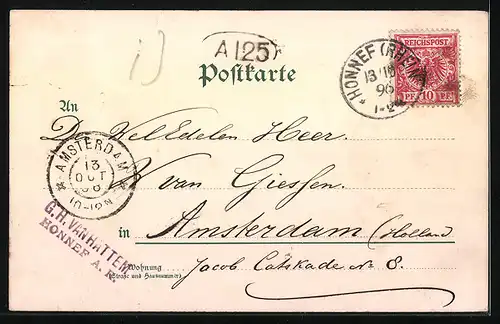 A 125
Postkarte
REICHSPOST
10 PF 10 PF
HONNEF (RHEIN)
13 10
96
1-2
An
De Wel Edelen Heer.
W van Giessen.
in Amsterdam (Holland
Jacob Catskade No 8.
Wohnung
(Straße und Hausnummer)
AMSTERDAM
13
OCT
96
10-12N
G. H. VAN HATTEM
HONNEF A. R.